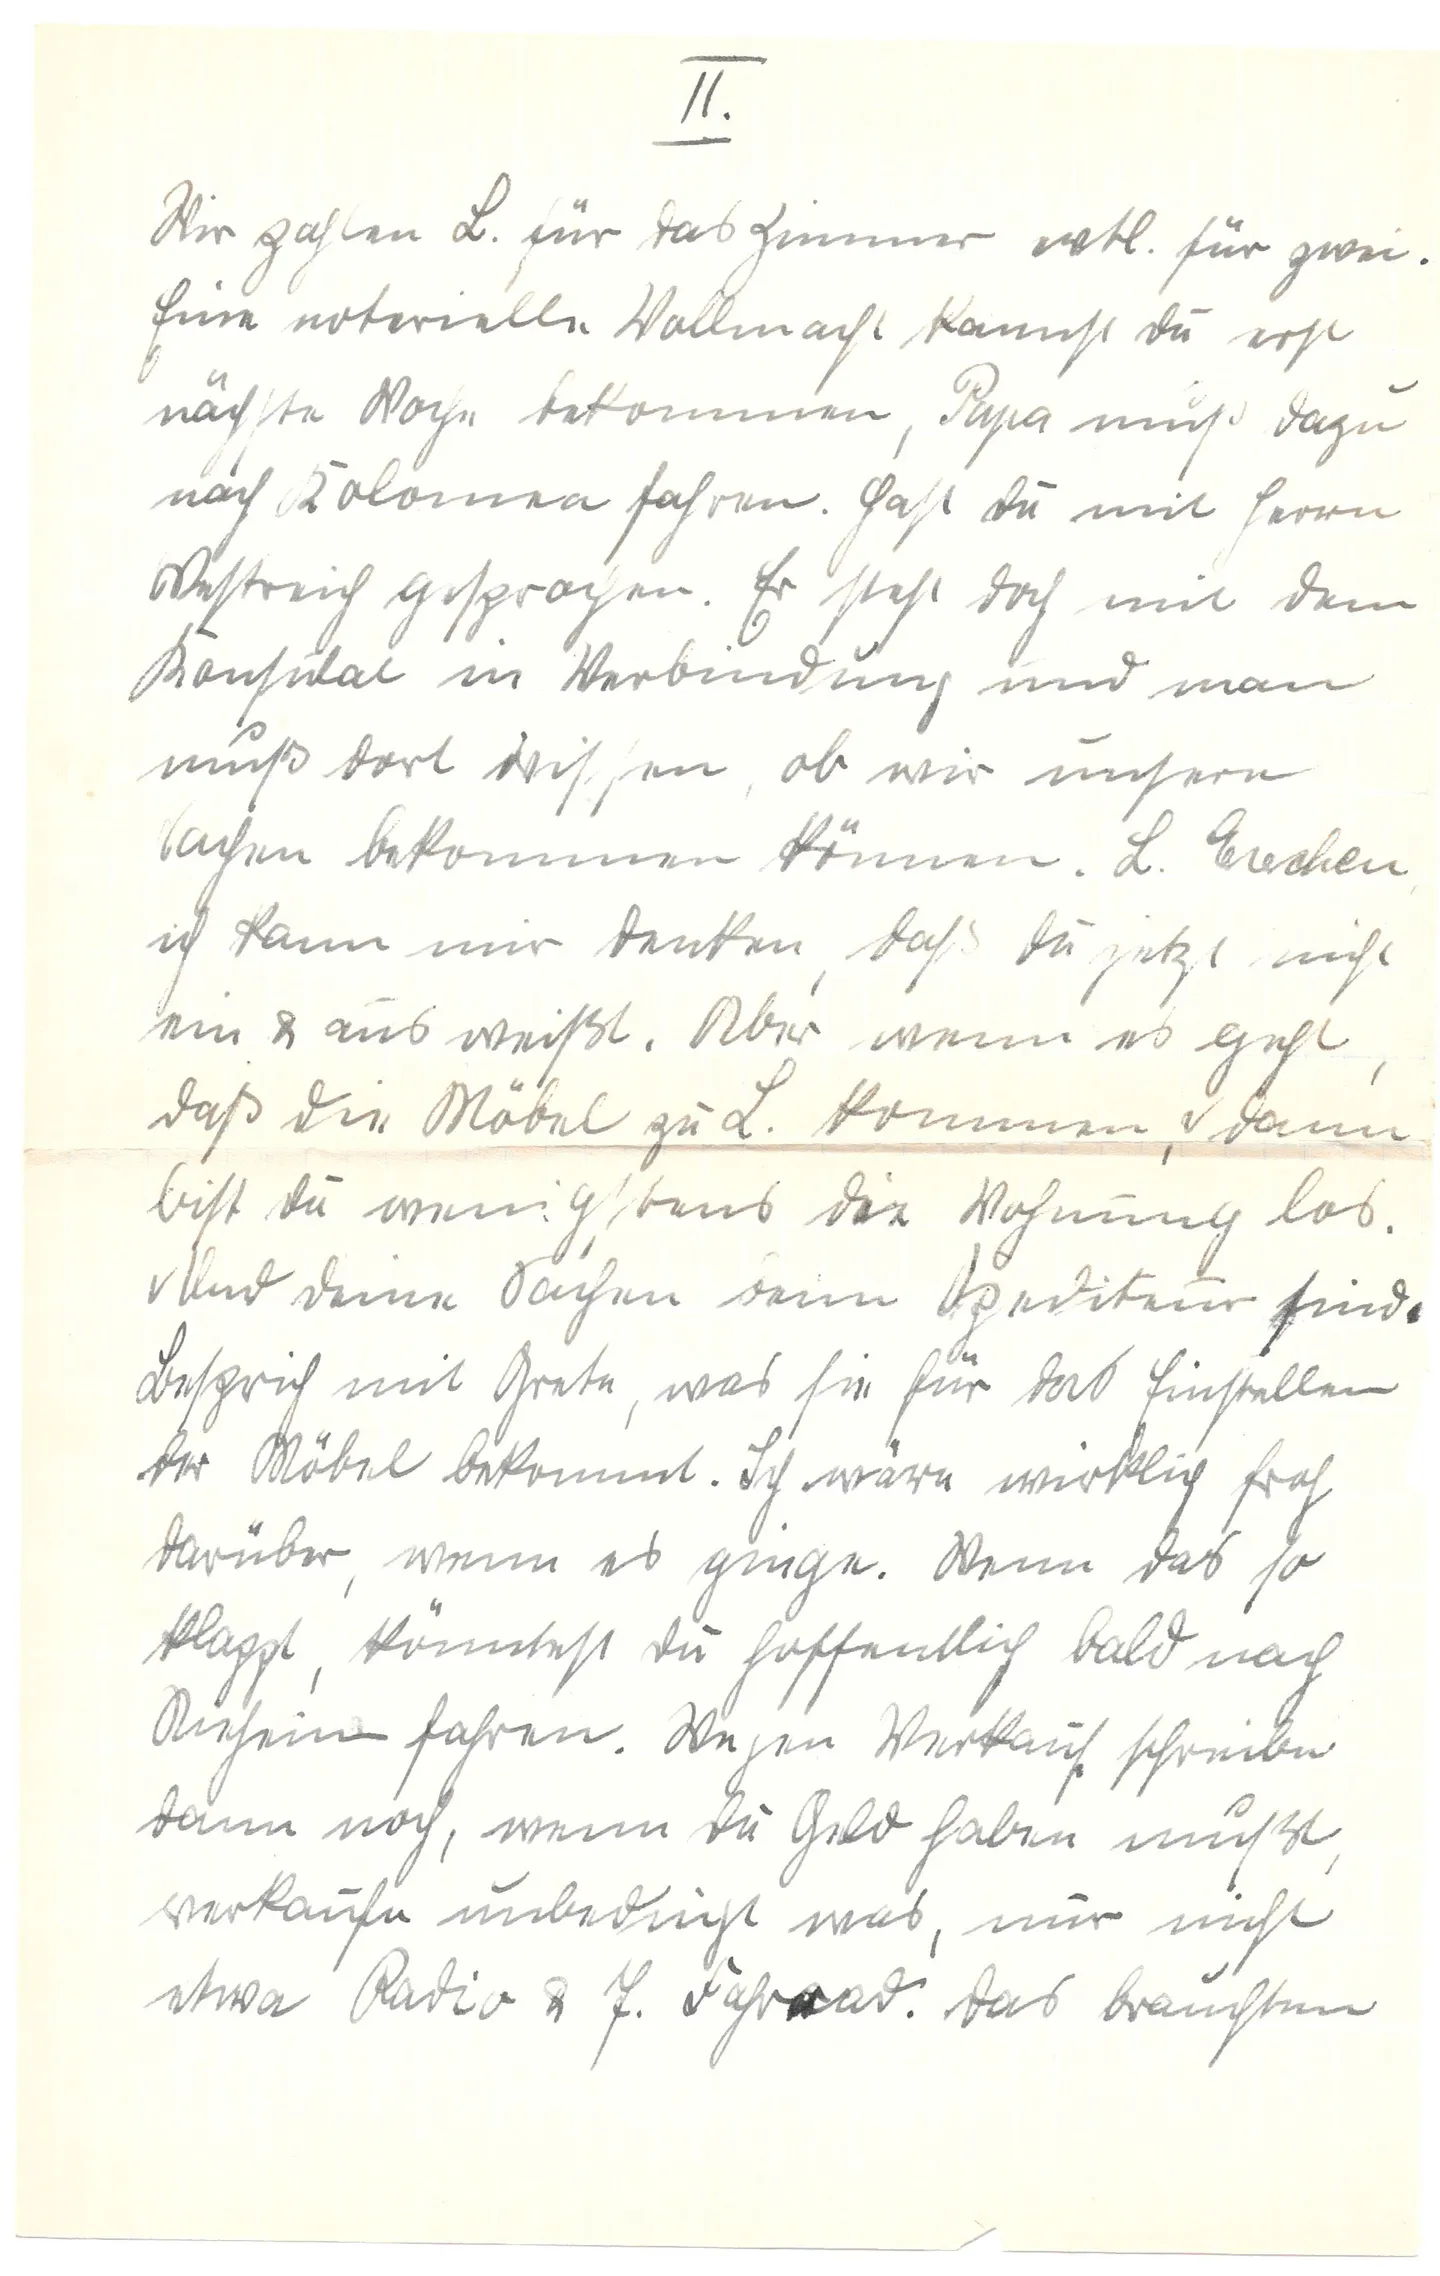 II.
Wir zahlen L. für das Zimmer evtl. für zwei.
Eine notarielle Vollmacht kannst du erst
nächste Woche bekommen, Papa muß dazu
nach Kolomea fahren. Hast du mit Herrn
Westreich gesprochen. Er steht doch mit dem
Konsulat in Verbindung und man
muß dort wissen, ob wir unsere
Sachen bekommen können. L.
ich kann mir denken, daß du jetzt nicht
ein & aus weißt. Aber wenn es geht,
daß die Möbel zu L. kommen, dann
bist du wenigstens die Wohnung los.
Und deine Sachen beim Spediteur sind.
Besprich mit Grete, was sie für das Einstellen
der Möbel bekommt. Ich wäre wirklich froh
darüber, wenn es ginge. Wenn das so
klappt, könntest du hoffentlich bald nach
fahren. Wegen Verkauf schreibe
dann noch, wenn du Geld haben mußt,
verkaufe unbedingt was, nur nicht
etwa Radio & J. Fahrrad. das brauchten